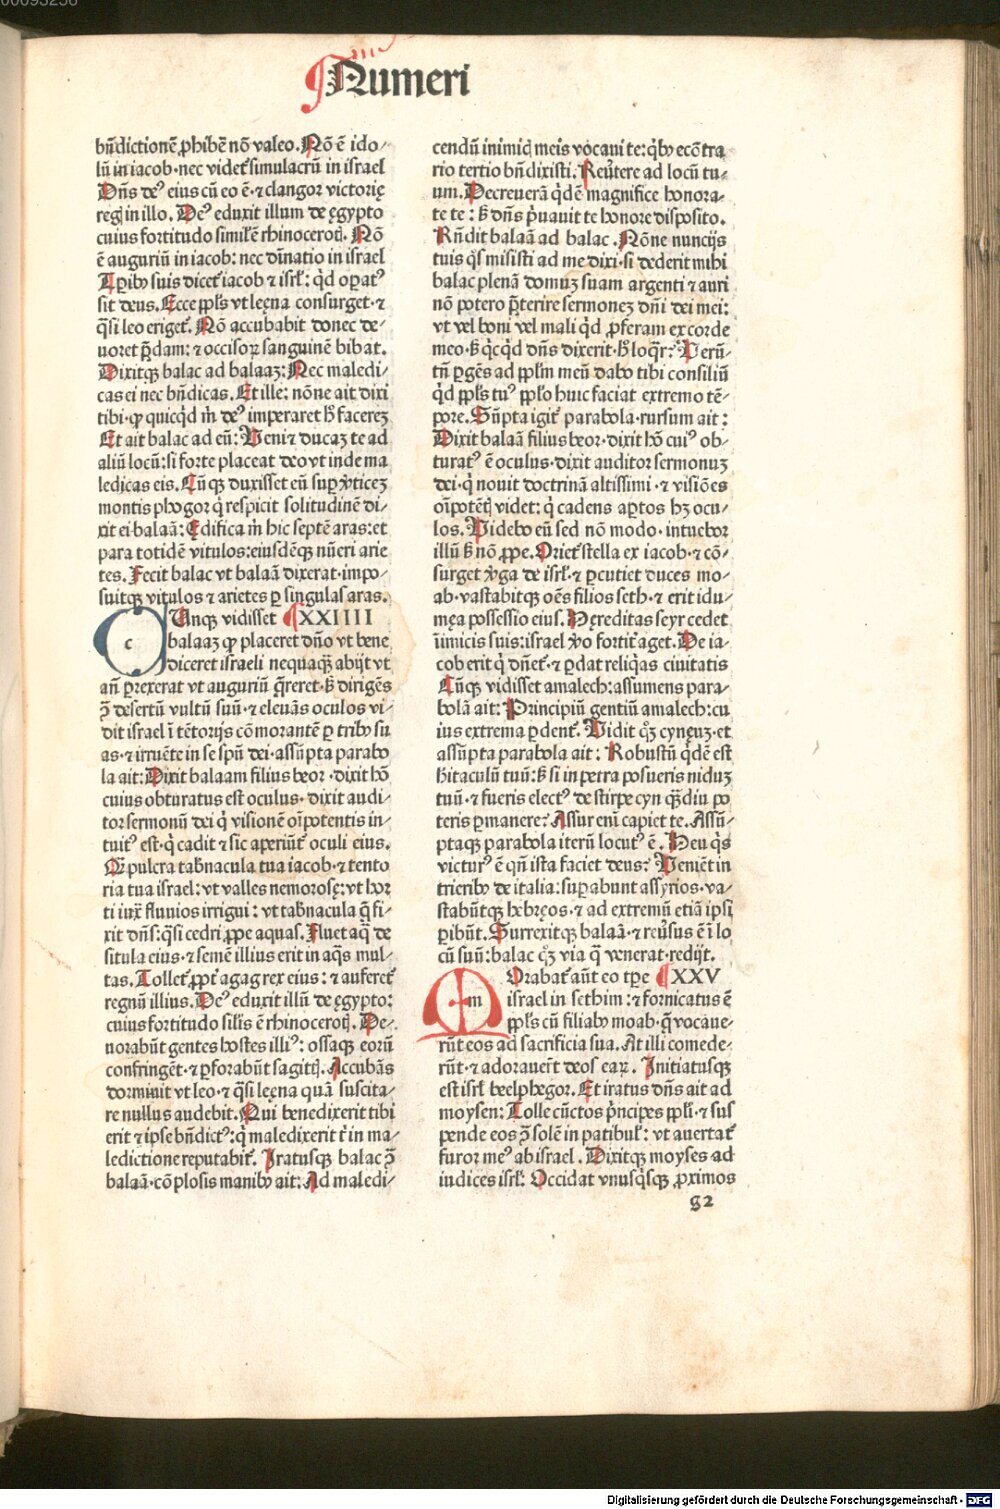 00093256
Numeri
bñdictionē ꝓhibē nō valeo. Nō ē ido/
lū in iacob·nec videt᷑ simulacrū in israel
Dñs deꝰ eius cū eo ē·⁊ clangor victorię
regꝭ in illo. Deꝰ eduxit illum de ęgypto
cuius fortitudo similꝭ ē rhinocerotꝭ. Nō
ē auguriū in iacob: nec diuinatio in israel
Tꝑibꝰ suis dicet᷑ iacob ⁊ isrł: qͥd oꝑatꝰ
sit deus. Ecce ppłs vt lęęna consurget·⁊
qͣsi leo eriget᷑. Nō accubabit donec de/
uoret p̄dam: ⁊ occisoꝝ sanguinē bibat.
Dixitqꝫ balac ad balaaꝫ: Nec maledi/
cas ei nec bñdicas. Et ille: nōne ait dixi
tibi·ꝙ quicqͥd mͥ deꝰ imperaret hͦ facereꝫ
Et ait balac ad eū: Veni ⁊ ducaꝫ te ad
aliū locū: si forte placeat deo vt inde ma
ledicas eis. Cūqꝫ duxisset eū suꝑ v̓ticeꝫ
montis phogor qͥ respicit solitudinē di/
xit ei balaā: Edifica mͥ hic septē aras: et
para totidē vitulos: eiusdēqꝫ nūeri arie
tes. Fecit balac vt balaā dixerat·impo/
suitqꝫ vitulos ⁊ arietes ꝑ singulas aras.
c
Unqꝫ vidisset ¶XXIIII
balaaꝫ ꝙ placeret dño vt bene
diceret israeli nequaqͣ̄ abijt vt
añ ꝑrexerat vt auguriū q̄reret·sꝫ dirigēs
ꝯ̄ desertū vultū suū·⁊ eleuās oculos vi/
dit israel ī tētorijs cōmorantē ꝑ tribꝰ su
as·⁊ irruēte in se spū dei·assūpta parabo
la ait: Dixit balaam filius beor·dixit hō
cuius obturatus est oculus·dixit audi/
tor sermonū dei qͥ visionē oīpotentis in/
tuitꝰ est·qͥ cadit ⁊ sic aperiūt᷑ oculi eius.
Qͣ̄ pulcra tabñacula tua iacob·⁊ tento
ria tua israel: vt valles nemorosę: vt hor
ti iuxͣ fluuios irrigui: vt tabñacula q̄ fi/
xit dñs: qͣsi cedri ꝓpe aquas. Fluet aqͣ de
situla eius·⁊ semē illius erit in aqͥs mul/
tas. Tollet᷑ ꝓpt̓ agag rex eius: ⁊ auferet᷑
regnū illius. Deꝰ eduxit illū de ęgypto:
cuius fortitudo silis ē rhinocerotꝭ. De/
uorabūt gentes hostes illiꝰ: ossaqꝫ eorū
confringēt·⁊ ꝑforabūt sagittꝭ. Accubās
dormiuit vt leo·⁊ qͣsi lęęna quā suscita/
re nullus audebit. Qui benedixerit tibi
erit ⁊ ipse bñdictꝰ: qͥ maledixerit tͥ in ma/
ledictione reputabit᷑. Iratusqꝫ balac ꝯ̄
balaā·cōplosis manibꝰ ait: Ad maledi/
cendū inimicꝭ meis vocaui te: qͥbꝰ ecōtra
rio tertio bñ dixisti. Reu̓tere ad locū tu/
um. Decreuerā qͥdē magnifice honora/
te te: sꝫ dñs p̓uauit te honore disposito.
Rñdit balaā ad balac. Nōne nuncijs
tuis qͦs misisti ad me dixi·si dederit mihi
balac plenā domuꝫ suam argenti ⁊ auri
nō potero p̄terire sermoneꝫ dñi dei mei:
vt vel boni vel mali qͥd ꝓferam ex corde
meo·sꝫ qͥcqͥd dñs dixerit·hͦ loqͣr: Verū/
tñ ꝑgēs ad ppłm meū dabo tibi consiliū
qͥd ppłs tuꝰ ppło huic faciat extremo tē/
pore. Sūpta igit᷑ parabola·rursum ait:
Dixit balaā filius beor·dixit hō cuiꝰ ob/
turatꝰ ē oculus·dixit auditor sermonuꝫ
dei·qͥ nouit doctrinā altissimi·⁊ visiōes
oīpotētꝭ videt: qͥ cadens aꝑtos hꝫ ocu/
los. Videbo eū sed nō modo·intuebor
illū sꝫ nō ꝓpe. Oriet᷑ stella ex iacob·⁊ cō/
surget v̓ga de isrł·⁊ ꝑcutiet duces mo/
ab·vastabitqꝫ oēs filios seth·⁊ erit idu/
męa possessio eius. Hęreditas seyr cedet
īimicis suis: israel v̓o fortit̓ aget. De ia/
cob erit qͥ dñet᷑·⁊ ꝑdat reliqͥas ciuitatis
Cūqꝫ vidisset amalech: assumens para/
bolā ait: Principiū gentiū amalech: cu
ius extrema ꝑdent᷑. Vidit qͦꝫ cynęuꝫ·et
assūpta parabola ait: Robustū qͥdē est
hītaculū tuū: sꝫ si in petra posueris niduꝫ
tuū·⁊ fueris electꝰ de stirpe cyn qͣ̄diu po
teris ꝑmanere? Assur enī capiet te. Assū/
ptaqꝫ parabola iterū locutꝰ ē. Heu qͥs
victurꝰ ē qñ ista faciet deus? Veniēt in
trieribꝰ de italia: suꝑabunt assyrios·va/
stabūtqꝫ hębręos·⁊ ad extremū etiā ipsi
ꝑibūt. Surrexitqꝫ balaā·⁊ reu̓sus ē ī lo
cū suū: balac qͦꝫ via qͣ venerat·redijt.
m
Orabat᷑ aūt eo tꝑe ¶XXV
israel in sethim: ⁊ fornicatus ē
ppłs cū filiabꝰ moab·q̄ vocaue/
rūt eos ad sacrificia sua. At illi comede/
rūt·⁊ adorauert̄ deos eaꝝ. Initiatusqꝫ
est isrł beelphegor. Et iratus dñs ait ad
moysen: Tolle cūctos p̓ncipes ppłi·⁊ sus
pende eos ꝯ̄ solē in patibuł: vt auertat᷑
furor meꝰ ab israel. Dixitqꝫ moyses ad
iudices isrł: Occidat vnusqͥsqꝫ ꝓximos
g2
Digitalisierung gefördert durch die Deutsche Forschungsgemeinschaft - DFG